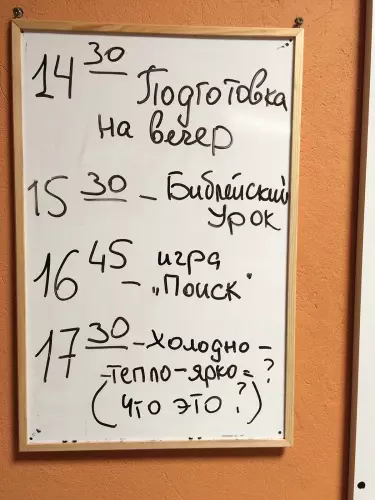 14 30 Подготовка
на вечер
15 30 - Библейский
Урок
16 45 - игра
"Поиск"
17 30 - Холодно -
- тепло - ярко = ?
(что это?)